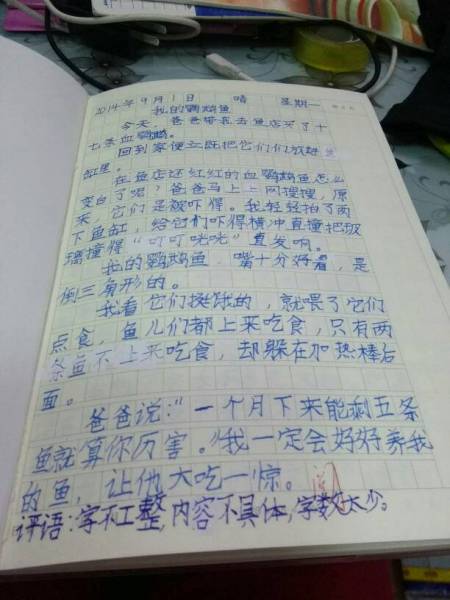 2014年9月1日 晴 星期一
我的鹦鹉鱼
今天,爸爸带我去鱼店买了十
七条血鹦鹉。
回到家便立既把它们们放进
缸里。
在鱼店还红红的血鹦鹉鱼怎么
变白了呢?爸爸马上上网搜搜,原
来,它们是被吓得。我轻轻拍了两
下鱼缸,给它们吓得横冲直撞把玻
璃撞得“叮叮咣咣”直发响。
我的鹦鹉鱼,嘴十分好看,是
倒三角形的。
我看它们挺饿的,就喂了它们
点食,鱼儿们都上来吃食,只有两
条鱼不上来吃食,却躲在加热棒后
面。
爸爸说:“一个月下来能剩五条
鱼就算你厉害。”我一定会好好养我
的鱼,让他大吃一惊。
评语:字不工整,内容不具体,字数太少。